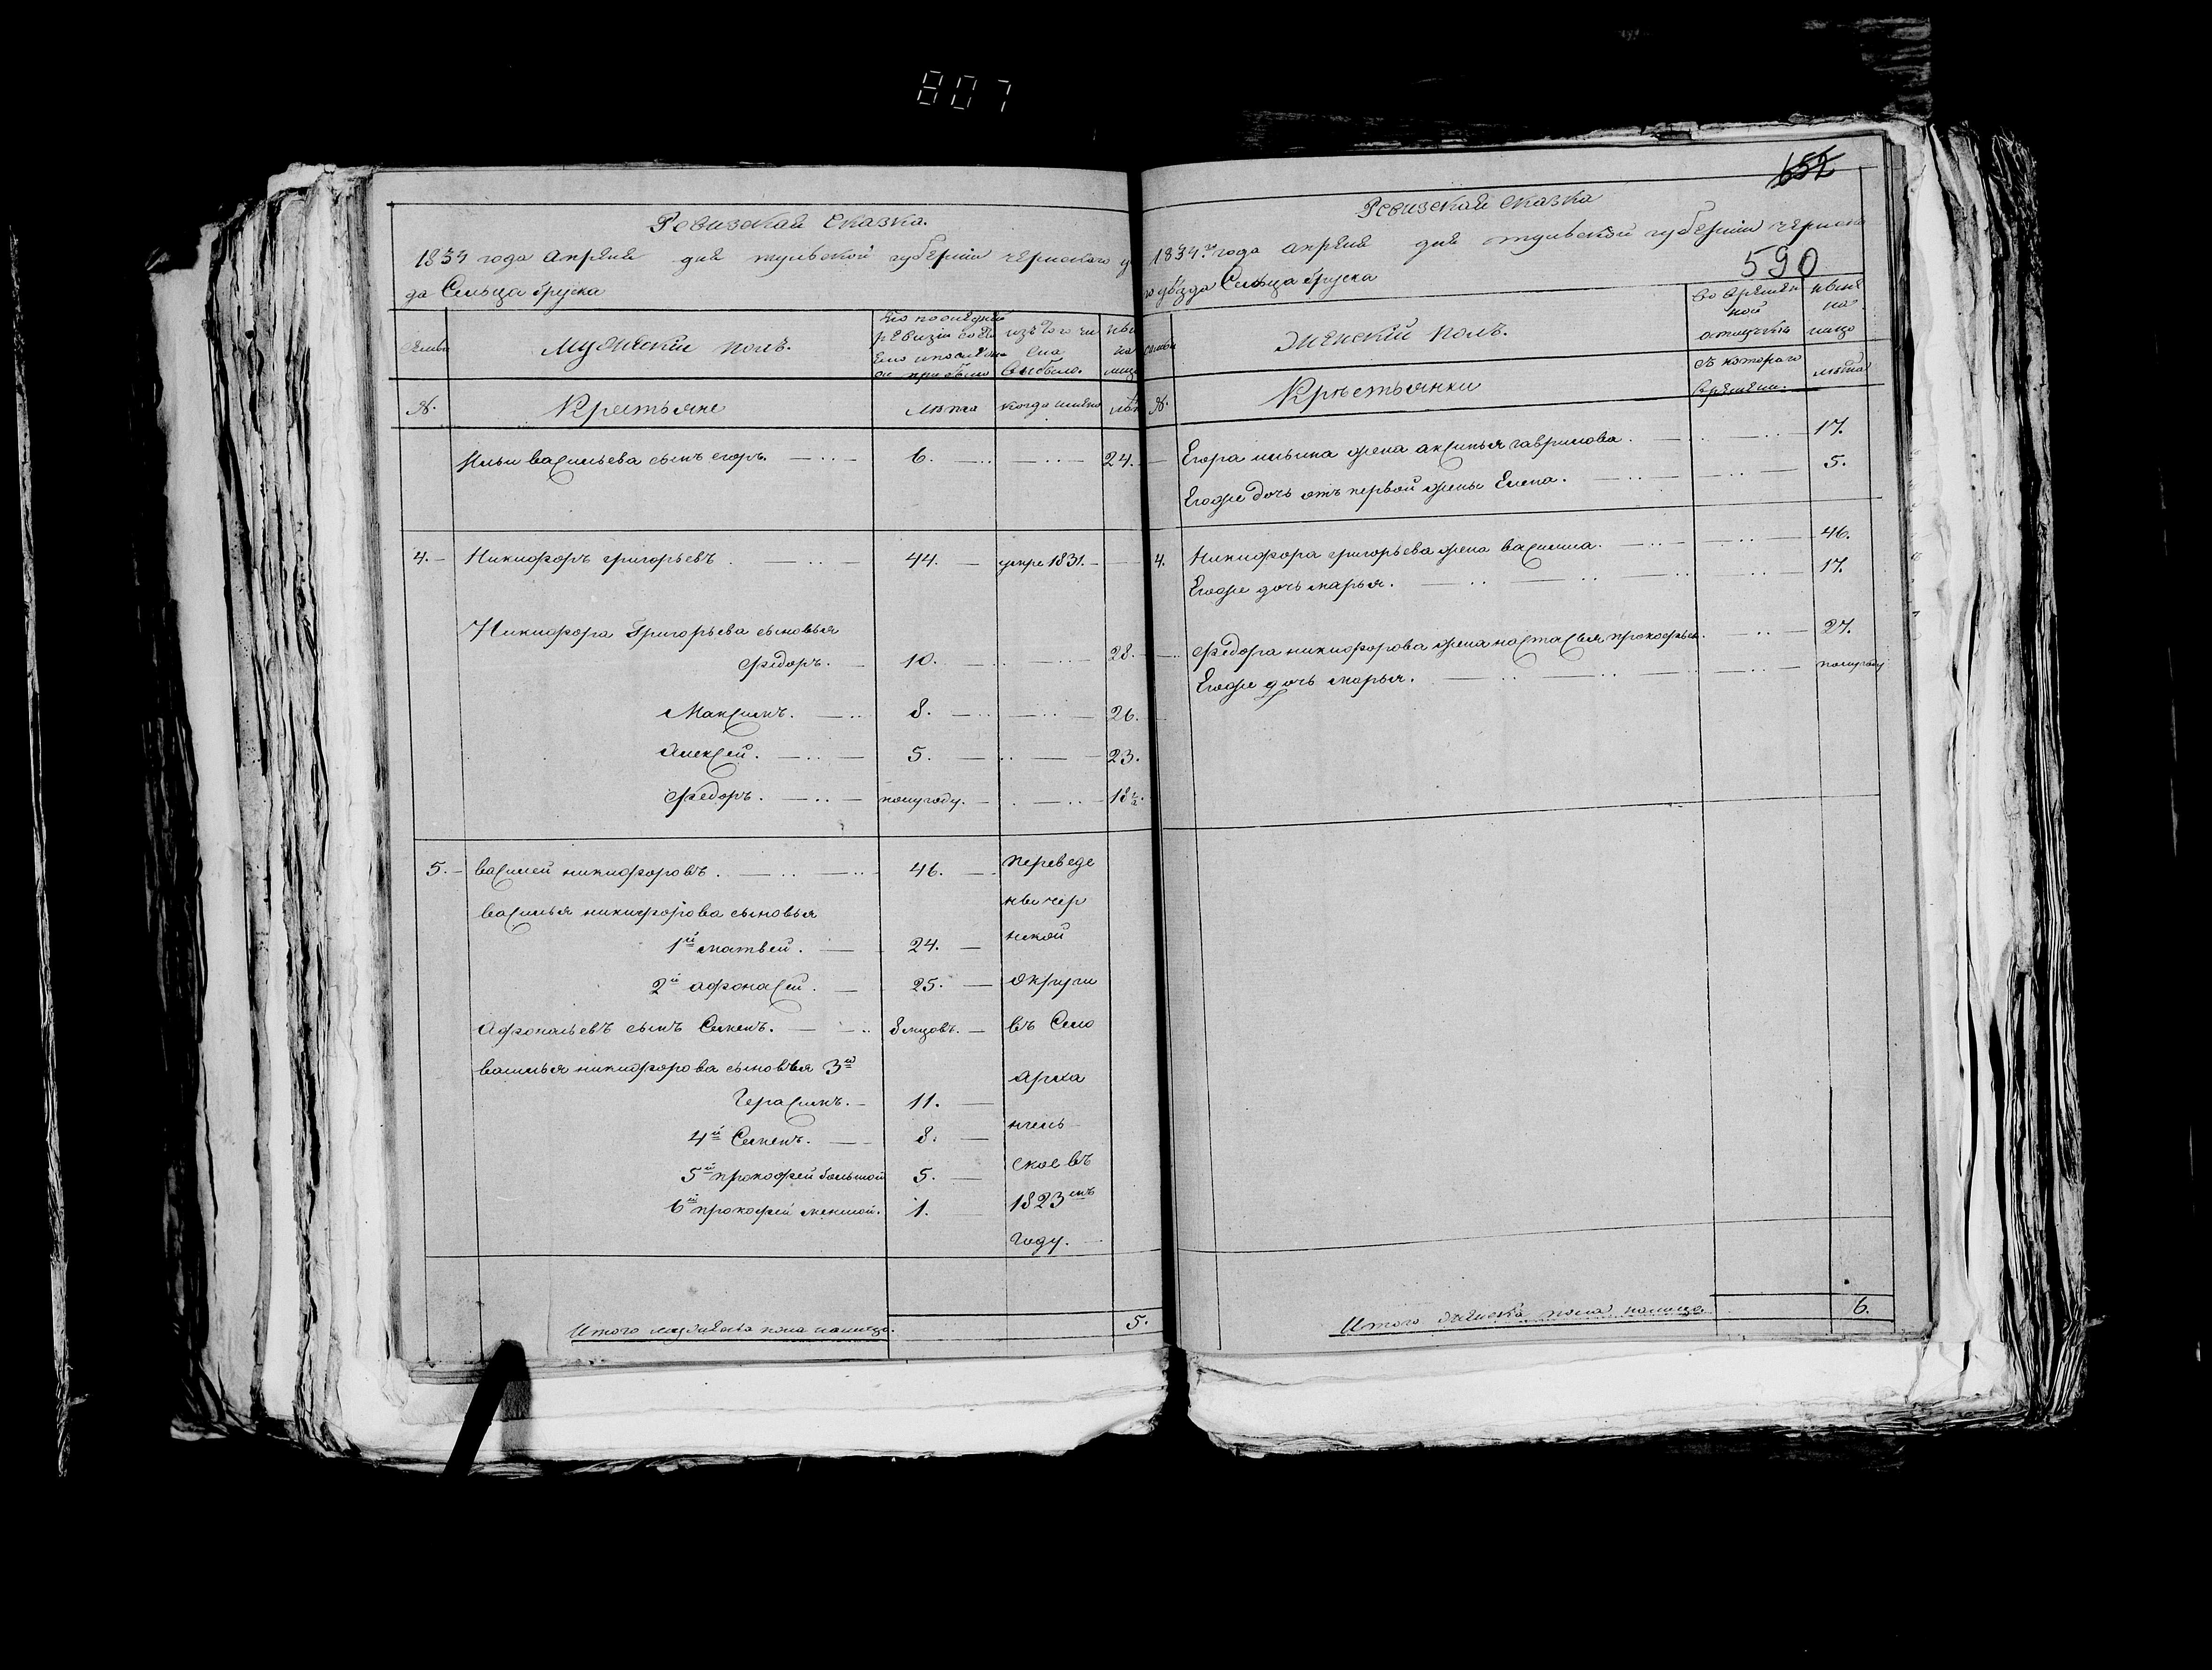 807
Ревизская сказка.
1834 года апреля дня тульской губернии чернскаго уѣ
да Сельца Бруска
Семьи
Мужеский полъ.
По последней
ревизіи состо
яло и после он
ои прибыло
изъ того чи
сла
выбыло.
ныне
на
лицо
№.
Крестьяне
лета
когда имяно
лѣт
Ильи васильева сынъ егоръ.
6.
24.
4.
Никифоръ григорьевъ
44.
умре 1831.
Никифора Григорьева сыновья
Фёдоръ.
10.
28.
Максимъ.
8.
26.
Алексей.
5.
23.
Федоръ.
полугоду.
18 1/2.
5.
василей никифоровъ.
46.
переведе
василья никифорова сыновья
ны чер
1й матвей.
24.
нской
2й афонасей.
25.
округи
Афонасьевъ сынъ Семенъ.
8 мцовъ.
въ Село
василья никифорова сыновья 3й
Арха
Герасимъ.
11.
нгель
4й Семенъ.
8.
ское въ
5й прокофей большой
5.
1823мъ
6й прокофей меншой.
1.
году.
Итого мужеска пола налицо.
5.
652
Ревизская сказка
1834го года апреля дня тульской губернии чернска
590
го уѣзда Сельца Бруска
Семьи
Женскій полъ.
Во времян
ной
отлучке
ныне
на
лицо
№.
Крестьянки
Съ котораго
времяни.
лѣта
Егора ильина жена аксинья гаврилова.
17.
Егоже дочь отъ первой жены Елена.
5.
4.
Никифора григорьева жена василиса.
46.
Егоже дочь марья.
17.
Фёдора никифорова жена настасья прокофьева.
27.
Егоже дочь марья.
полугоду
Итого женска пола налицо
6.